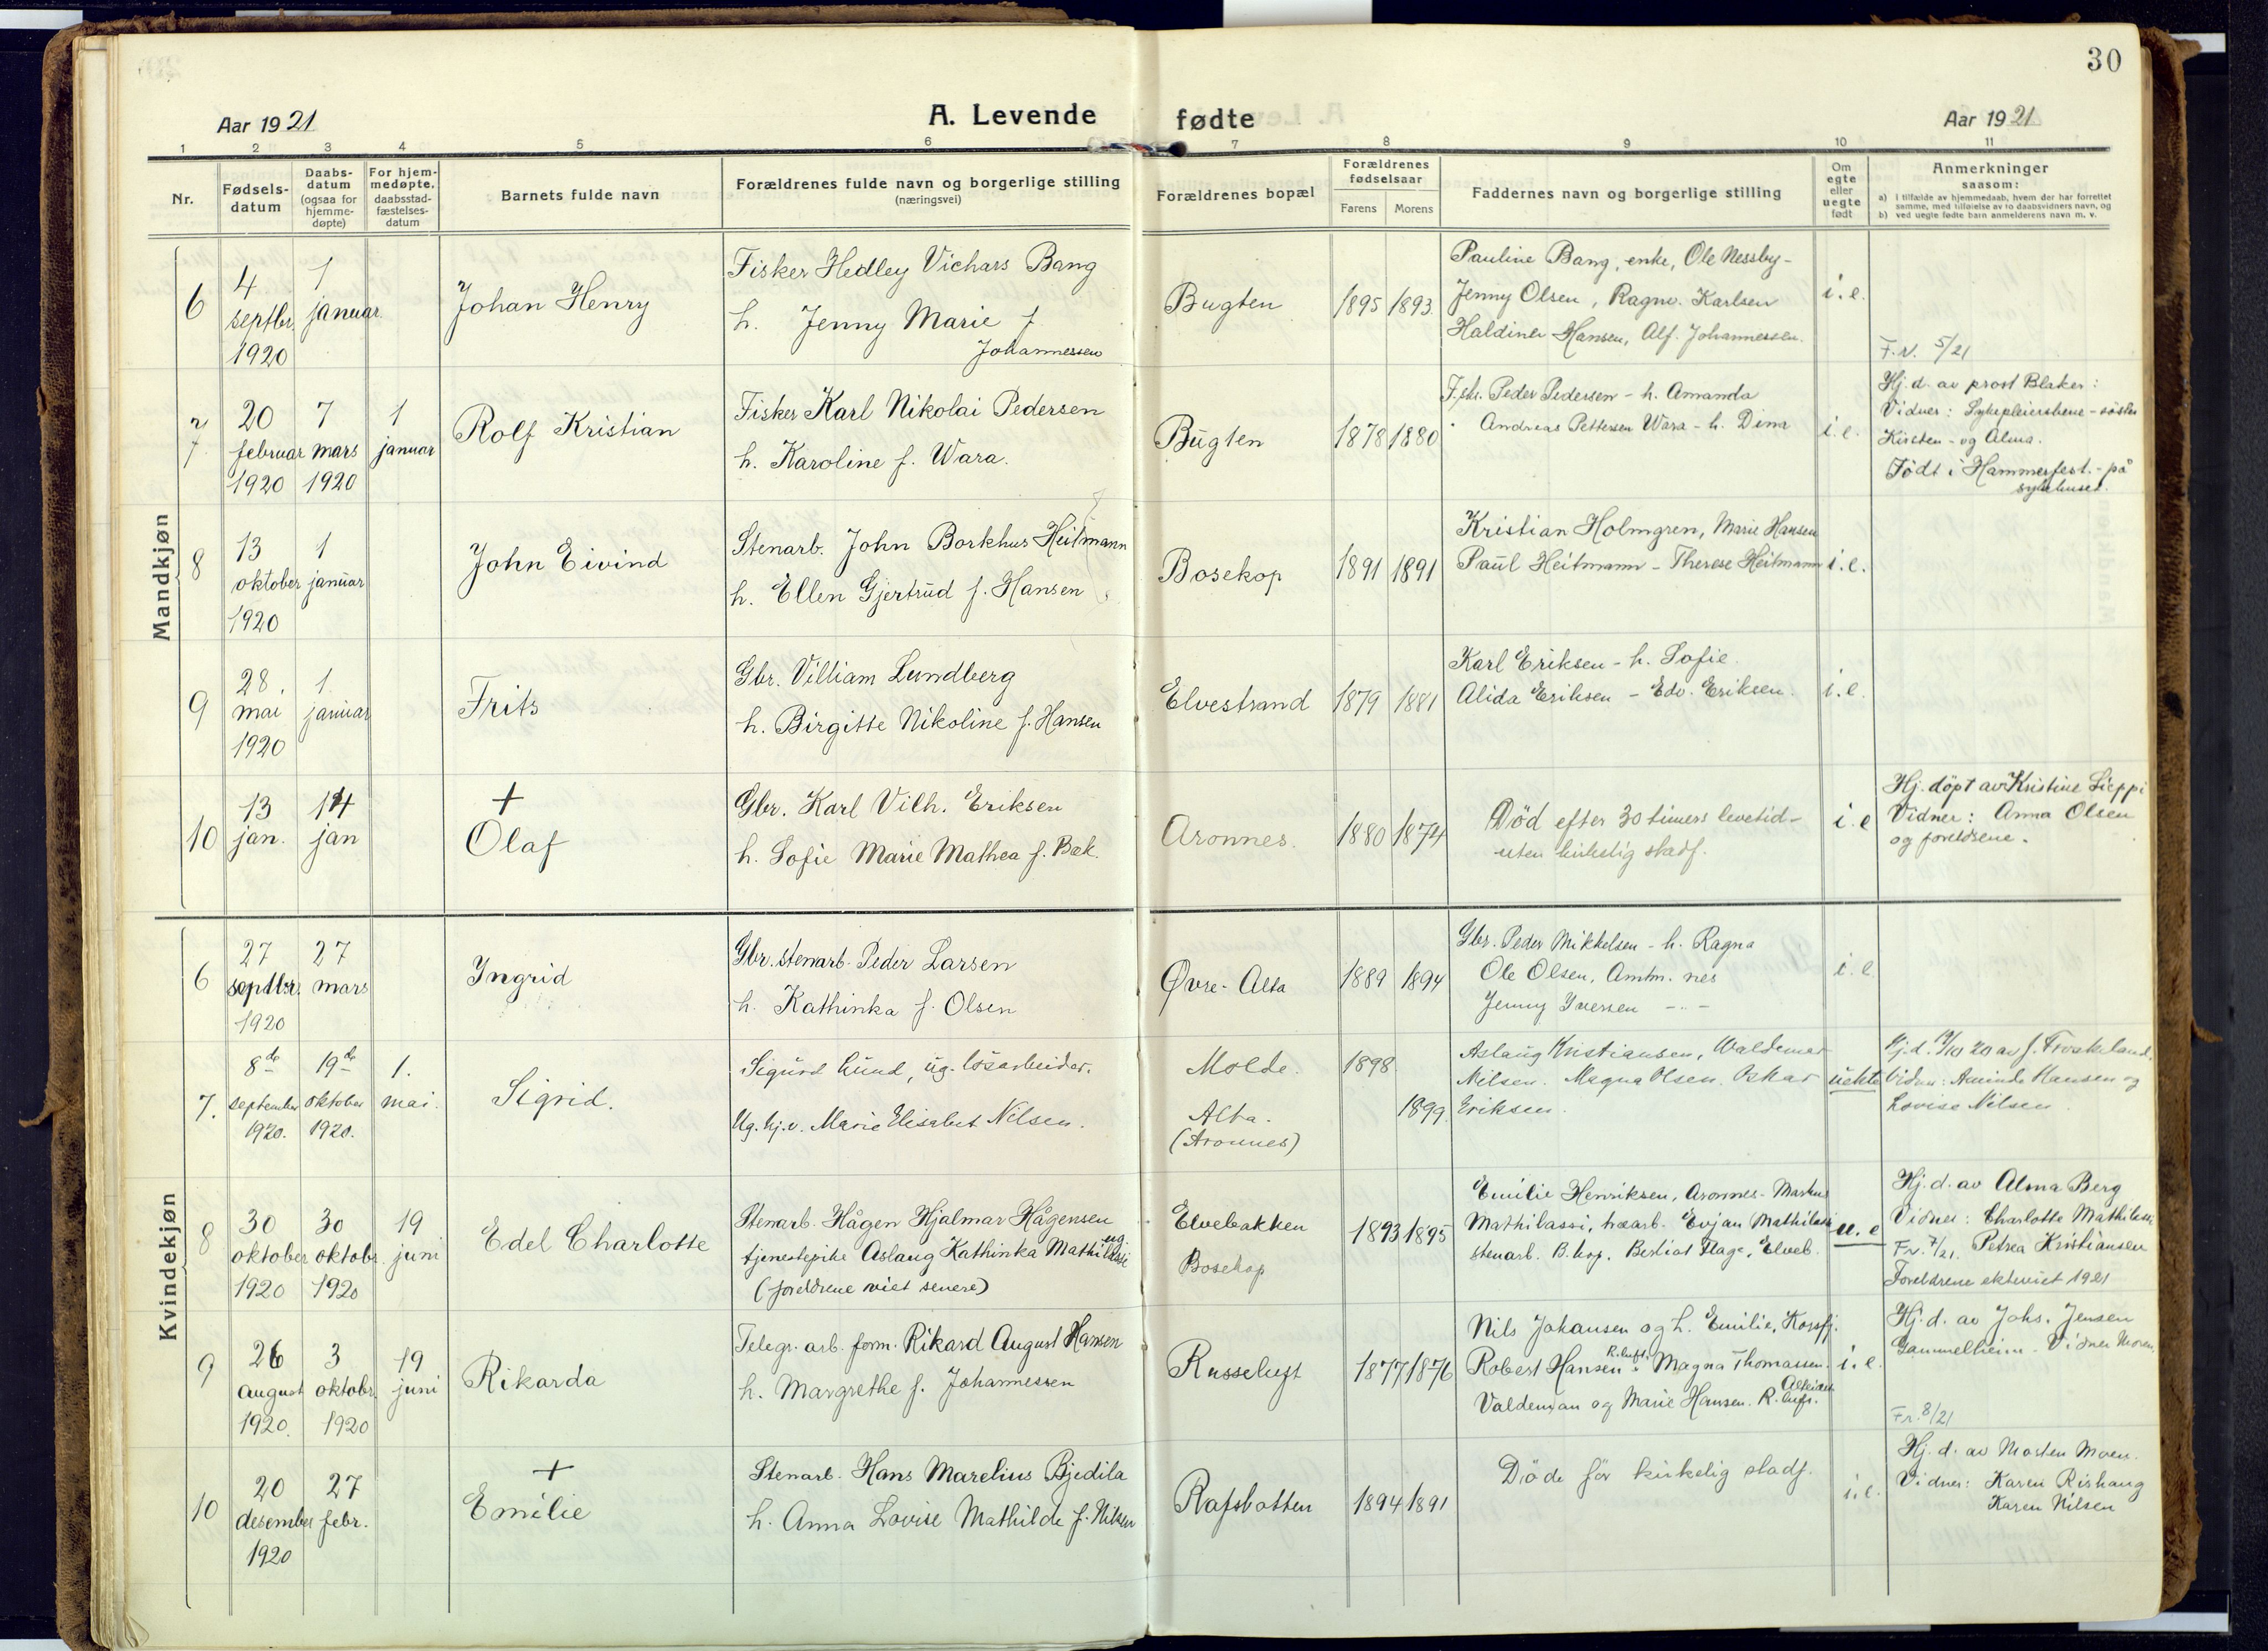 30
Aar 1921
A. Levende fødte
Aar 1921
1 2 3 4 5 6 7 8 9 10 11
Nr.
Fødsels-
datum
Daabs-
datum
(ogsaa for
hjemme-
døpte)
For hjem-
medøpte,
daabsstad-
fæstelses-
datum
Barnets fulde navn
Forældrenes fulde navn og borgerlige stilling
(næringsvei)
Forældrenes bopæl
Forældrenes
fødselsaar
Farens Morens
Faddernes navn og borgerlige stilling
Om
egte
eller
uegte
født
Anmerkninger
saasom:
a) i tilfælde av hjemmedaab, hvem der har forrettet
samme, med tilføielse av to daabsvidners navn, og
b) ved uegte fødte barn anmelderens navn m. v.
Mandkjøn
6
4
septbr
1920
1
januar
Johan Henry
Fisker Hedley Vichars Bang
h. Jenny Marie f.
Johannessen
Bugten
1895 1893
Pauline Bang, enke, Ole Nessby-
Jenny Olsen, Ragnv. Karlsen
Haldiner Hansen, Alf. Johannessen.
i. e.
F.v. 5/21
7
20
februar
1920
7
mars
1920
1
januar
Rolf Kristian
Fisker Karl Nikolai Pedersen
h. Karoline f. Wara.
Bugten
1878 1880
Peder Pedersen - h. Amanda
Andreas Pettersen Wara - h. Dina
i. e.
Hj. d. av prost Blaker:
Vidner: Sykepleierskene - søster
Kirsten - og Alma.
Født i Hammerfest. - på
sykehuset.
8
13
oktober
1920
1
januar
John Eivind
Stenarb. John Borkhus Heitmann
h. Ellen Gjertrud f. Hansen
Bosekop
1891 1891
Kristian Holmgren, Marie Hansen
Paul Heitmann - Therese Heitmann
i. e.
9
28.
mai
1920
1
januar
Frits
Gbr. Villiam Lundberg
h. Birgitte Nikoline f. Hansen
Elvestrand
1879 1881
Karl Eriksen - h. Sofie.
Alida Eriksen - Edv. Eriksen.
i. e.
10
13
jan.
14
jan
+
Olaf
Gbr. Karl Vilh. Eriksen
h. Sofie Marie Mathea f. Bek.
Aronnes.
1880 1874
Død efter 30 timers levetid-
uten kirkelig stadf.
i. e
Hj. døpt av Kristine Sieppi
Vidner: Anna Olsen
og foreldrene.
Kvindekjøn
6
27
septbr.
1920
27
mars
Ingrid
Gbr. stenarb. Peder Larsen
h. Kathinka f. Olsen
Øvre-Alta
1889 1894
Gbr. Peder Mikkelsen - h. Ragna
Ole Olsen, Amtm. nes
Jenny Iversen -..-
i. e.
7.
8de
september
1920.
19de
oktober
1920.
1.
mai.
Sigrid.
Sigurd Lund, ug. løsarbeider.
Ug. hj.v. Marie Elisabet Nilsen.
Molde.
Alta.
(Aronnes)
1898
1899
Aslaug Kristiansen, Waldemar
Nilsen. Magna Olsen. Oskar
Eriksen.
uekte
Hj.d. 19/10 20 av J. Froskeland.
Vidner: Aminda Hansen og
Lovise Nilsen
8
30
oktober
1920
30
oktobr.
1920
19
juni
Edel Charlotte
Stenarb. Hågen Hjalmar Hågensen
ug.
tjenestepike Aslaug Kathinka Mathilassi
(foreldrene viet senere)
Elvebakken
Bosekop
1893 1895
Emilie Henriksen, Aronnes - Markus
Mathilassi, Evjan Mathilassi
stenarb. B.kop. Flage, Elveb.
u. e
Hj. d. av Alma Berg
Vidner: Charlotte Mathilassi,
Fv. 7/21. Petra Kristiansen
Foreldrene ekteviet 1921
9
26
august
1920.
3
oktobr
1920
19
juni
Rikarda
Telegr. arb. form. Rikard August Hansen
h. Margrethe f. Johannessen
Russeluft
1877 1876
Nils Johansen og h. Emilie, Korsfj.
R.luft.
Robert Hansen Magna Thomassen.
Valdemar og Marie Hansen. R.luft.
i. e.
Hj. d. av Johs. Jensen
Gammelheim. Vidner Moren
Fr. 8/21
10
20
desember
1920
27
febr.
+
Emilie
Stenarb. Hans Marelius Bjedila
h. Anna Lovise Mathilde f. Nilsen
Rafsbotten
1894 1891
Døde før kirkelig stadf.
i. e.
Hj. d. av Morten Moen.
Vidner: Karen Rishaug
Karen Nilsen